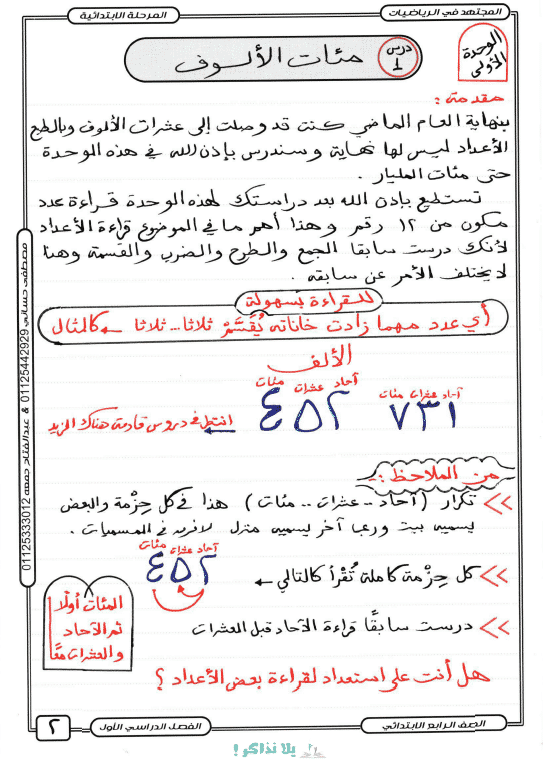 المجتهد في الرياضيات
المرحلة الابتدائية
الوحدة
الأولى
درس
1
مئات الألوف
مقدمة :
بنهاية العام الماضي كنت قد وصلت إلى عشرات الألوف وبالطبع
الأعداد ليس لها نهاية وسندرس بإذن الله في هذه الوحدة
حتى مئات المليار .
تستطيع بإذن الله بعد دراستك لهذه الوحدة قراءة عدد
مكون من ١٢ رقم وهذا أهم ما في الموضوع قراءة الأعداد
لأنك درست سابقا الجمع والطرح والضرب والقسمة وهنا
لا يختلف الأمر عن سابقه .
للقراءة بسهولة
أي عدد مهما زادت خاناته يُقَسَّمْ ثلاثا... ثلاثا ← كالمثال
الألف
آحاد عشرات مئات
آحاد عشرات مئات
٧٣١
٤٥٢
انتظر في دروس قادمة هناك المزيد
من الملاحظ :-
تكرار (آحاد .. عشرات .. مئات) هذا في كل حِزْمة والبعض
يسميه بيت وربما آخر يسميه منزل لا فرق في المسميات .
آحاد عشرات مئات
٤٥٢
كل حِزْمة كاملة تُقْرأ كالتالي ←
المئات أولًا
ثم الآحاد
والعشرات معًا
درست سابقًا قراءة الآحاد قبل العشرات
هل أنت على استعداد لقراءة بعض الأعداد ؟
مصطفى حساني 01125442929 & عبدالفتاح جمعه 01125333012
الصف الرابع الابتدائي
الفصل الدراسي الأول
٢
يلا نذاكر !